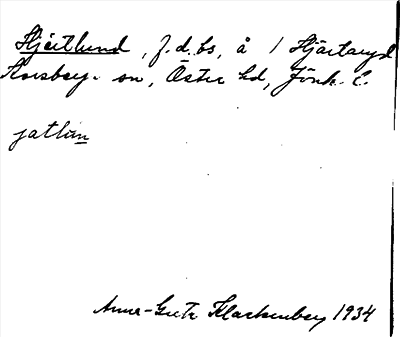 Hjertlund, f.d.bs, å 1 Hjärtaryd
Korsberga sn, Öster hd, Jönk. l.
jatlun
Anna-Greta Klackenberg 1934